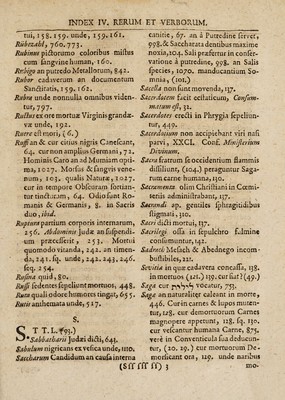 INDEX IV. RERUM ET VERBORUM.
tui, 158. 159. unde, 159. 161.
Rübezahl, 760. 773.
Rubinus pictorumo coloribus mistus
cum sanguine human, 160.
Rebigo an putredo Metallorum, 842.
Rubor cadaverum an documentum
Sanctitatis, 159. 161.
Rubra unde nonnulla omnibus viden-
tur, 797.
Ructus ex ore mortuæ Virginis grandæ-
væ unde, 192.
Ruere est mori, (6.)
Ruffi an & cur citius nigris Canescant,
64. cur non amplius Germani, 72.
Hominis Caro an ad Mumiam opti-
ma, 1027. Morsus & sangvis vene-
num, 103. qualis Natura, 1027.
cur in tempore Obscurum fortian-
tur tincturam, 64. Odiosi sunt Ro-
manis & Germanis, §. in Sacris
duo, ibid.
Ruptura partium corporis internarum,
256. Abdominis Judæ an suspendi-
um præcesserit, 253. Mortui
quomodo vitanda, 242. an timen-
da, 241. sq. unde, 242. 243. 246.
seq. 254.
Ruspina quid, 80.
Russi sedentes sepeliunt mortuos, 448.
Ruta quali odore humores tingat, 655.
Rutis anthemata unde, 517.
S.
S T T L. 993.)
Sabbatharii Judæi dicti, 643.
Sabulum nigricans ex vesica unde, 1110.
Saccharum Candidum an causa interna
canitie, 67. an à Putredine servet,
998. & Saccharata dentibus maxime
noxia, 104. Sali præfertur in conser-
vatione à putredine, 998. an Salis
species, 1070. manducantium So-
mnia, (101.)
Sacella non sunt movenda, 137.
Sacerdotem facit ecstaticum, Consum-
mentum est, 32.
Sacerdotes erecti in Phrygia sepeliun-
tur, 449.
Sacerdotium non accipiebant viri nasi
parvi, XXCI. Conf. Ministerium
Divinum.
Sacra fratrum se occidentium flammis
dissiliunt, (104.) peraguntur Saga-
rum carne humana, 130.
Sacramenta olim Christiani in Cœmi-
teriis administrabant, 137.
Sacramali ap. gentiles sphragitidibus
signati, 310.
Sacri dicti mortui, 137.
Sacrilegi ossa in sepulchro fulmine
consumuntur, 142.
Sadrach Mesach & Abednego incom-
bustibiles, 221.
Sævitia in quæ cadavera concessa, 138.
in mortuos (121.) 139. cur fiat? (49.)
Saga cur vocetur, 751.
Saga an naturaliter caleant in morte,
446. Cur in carnes & lupos muten-
tur, 128. cur demortuorum Carnes
magnopere appetunt, 128. sq. 130.
cur vescantur humana Carne, 875.
verè in Conventicula sua deducun-
tur, (20. 29.) cur mortuorum De-
morsicant ora, 129. unde naribus
(Sſſ ſſſ ſſ) 3
mo-